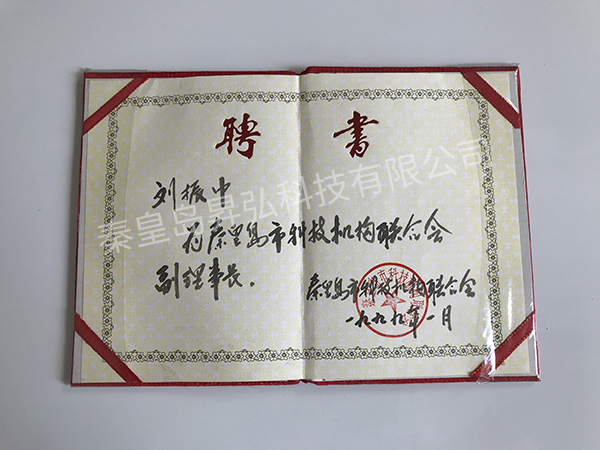 聘 书
刘振中
为秦皇岛市科技机构联合会
副理事长。
秦皇岛市科技机构联合会
一九九九年一月
秦皇岛昇弘科技有限公司